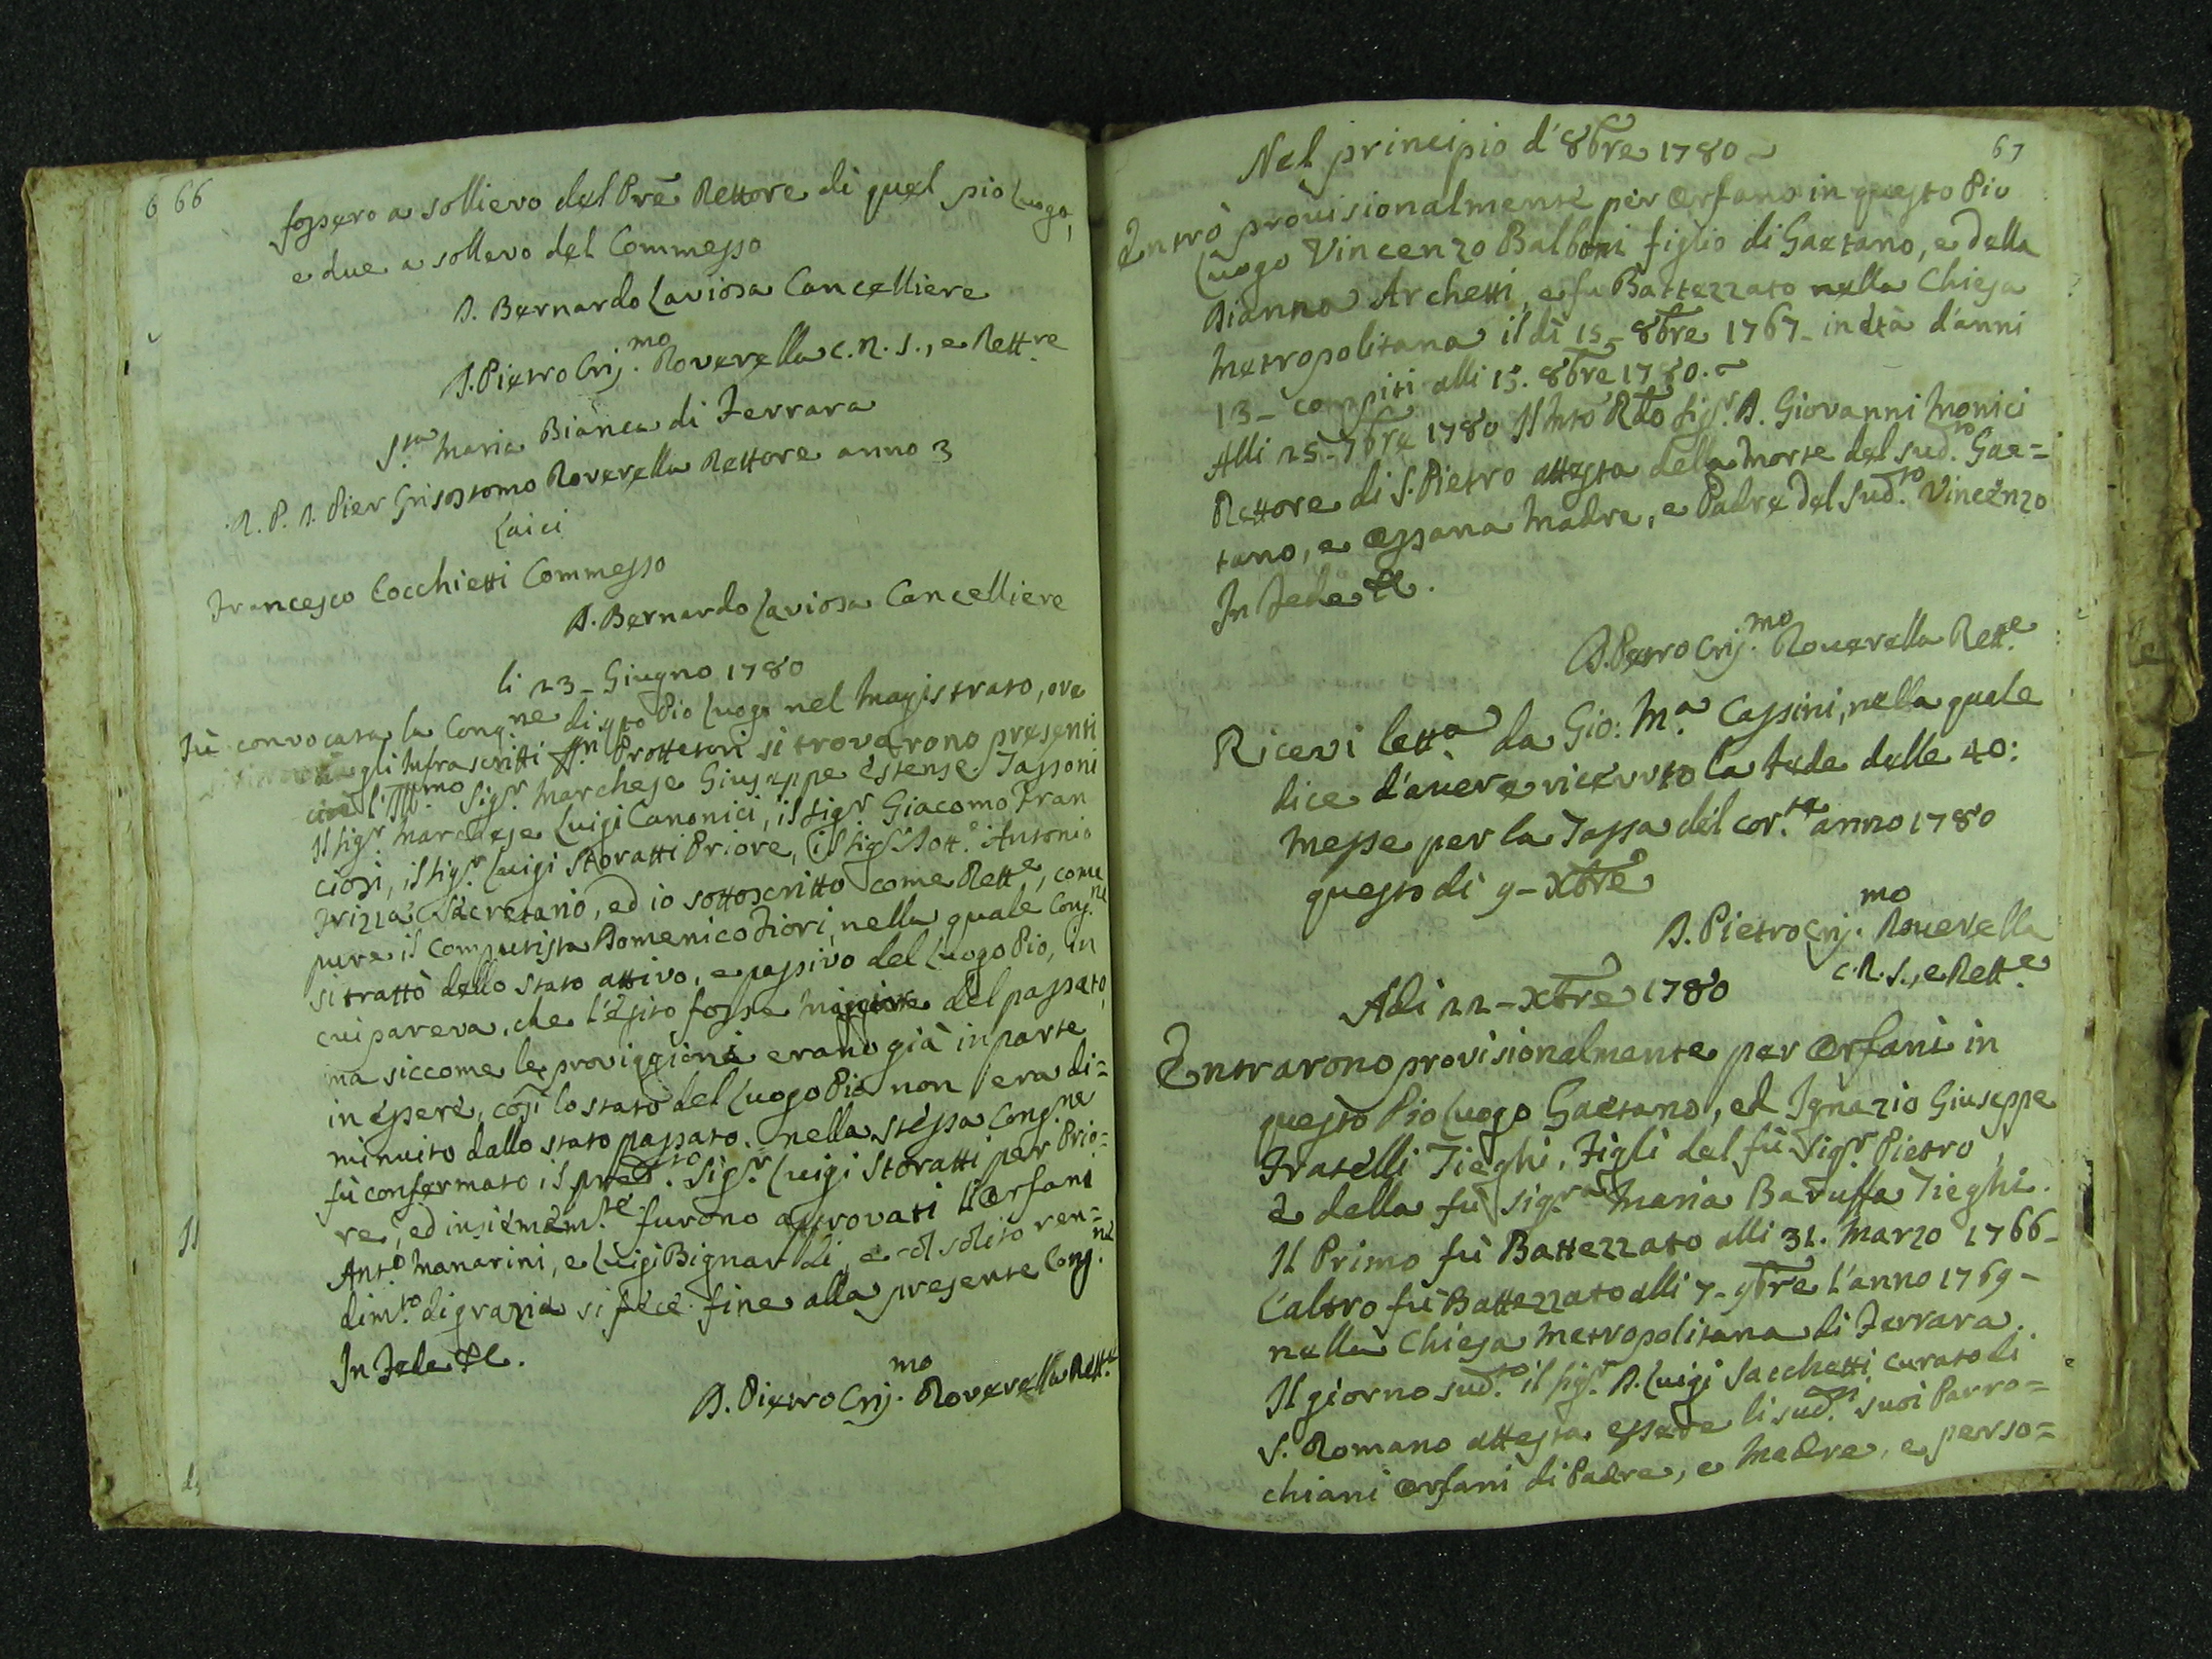 6 66
fossero a sollievo del Prē Rettore di quel pio Luogo,
e due a sollevo del Commesso
D. Bernardo Laviosa Cancelliere
D. Pietro Crij.mo Roverella C. R. S., e Rett.re
S.ta Maria Bianca di Ferrara
R. P. D. Pier Grisostomo Roverella Rettore anno 3
Laici
Francesco Cocchietti Commesso
D. Bernardo Laviosa Cancelliere
li 23 - Giugno 1780
Fù convocata la Cong.ne di qto Pio Luogo nel Magistrato, ove
gli Infrascritti Prottetori si trovarono presenti
cioè l'Ill.mo Sig.r Marchese Giuseppe Estense Tassoni
Il Sig.r Marchese Luigi Canonici, il Sig.r Giacomo Fran
ciosi, il Sig.r Luigi Storatti Priore, il Sig.r Dott.e Antonio
Frizza Secretario, ed io sottoscritto come Rett.e, come
pure il Computista Domenico Fiori, nella quale Cong.ne
si trattò dello stato attivo, e passivo del Luogo Pio, in
cui pareva, che l'esito fosse del passato,
ma siccome le proviggioni erano già in parte
in essere, così lo stato del Luogo Pio non era di=
minuito dallo stato passato. nella stessa Cong.ne
fù confermato il pred.tto Sig.r Luigi Storatti per Prio=
re, ed insiemem.te furono approvati li Orfani
Ant.o Manarini, e Luigi Bignardi, e col solito ren=
dim.to di grazie si fece fine alla presente Cong.ne
In Fede &c.
D. Pietro Crij.mo Roverella Rett.e
67
Nel principio d'8bre 1780 ~
Entrò provisionalmente per Orfano in questo Pio
Luogo Vincenzo Balboni figlio di Gaetano, e della
Dianna Archetti, e fu Battezzato nella Chiesa
Metropolitana il dì 15 - 8bre 1767 - in età d'anni
13 - compiti alli 15. 8bre 1780. ~
Alli 25 - 7bre 1780 Il Mto Rdo Sig.r D. Giovanni Monici
Rettore di S. Pietro attesta della morte del sud.to Gae=
tano, e Madre, e Padre del Sud.to Vincenzo
In Fede &c.
D. Pietro Crij.mo Roverella Rett.e
Ricevi lett.a da Gio: M.a Cassini, nella quale
dice d'avere ricevuto la fede delle 40:
Messe per la Tassa del cor.te anno 1780
questo dì 9 - Xbre
D. Pietro Crij.mo Roverella
C. R. S., e Rett.e
Adi 22 - Xbre 1780
Entrarono provisionalmente per Orfani in
questo Pio Luogo Gaetano, ed Ignazio Giuseppe
Fratelli Tieghi, Figli del fù Sig.r Pietro
e della fù Sig.ra Maria Baruffa Tieghi.
Il Primo fù Battezzato alli 31. Marzo 1766 -
L'altro fù Battezzato alli 7 - 9bre l'anno 1769 -
nella Chiesa Metropolitana di Ferrara.
Il giorno sud.to il Sig.r D. Luigi Sacchetti Curato di
S. Romano attesta essere li sud.ti suoi Parro=
chiani Orfani di Padre, e Madre, e perso=